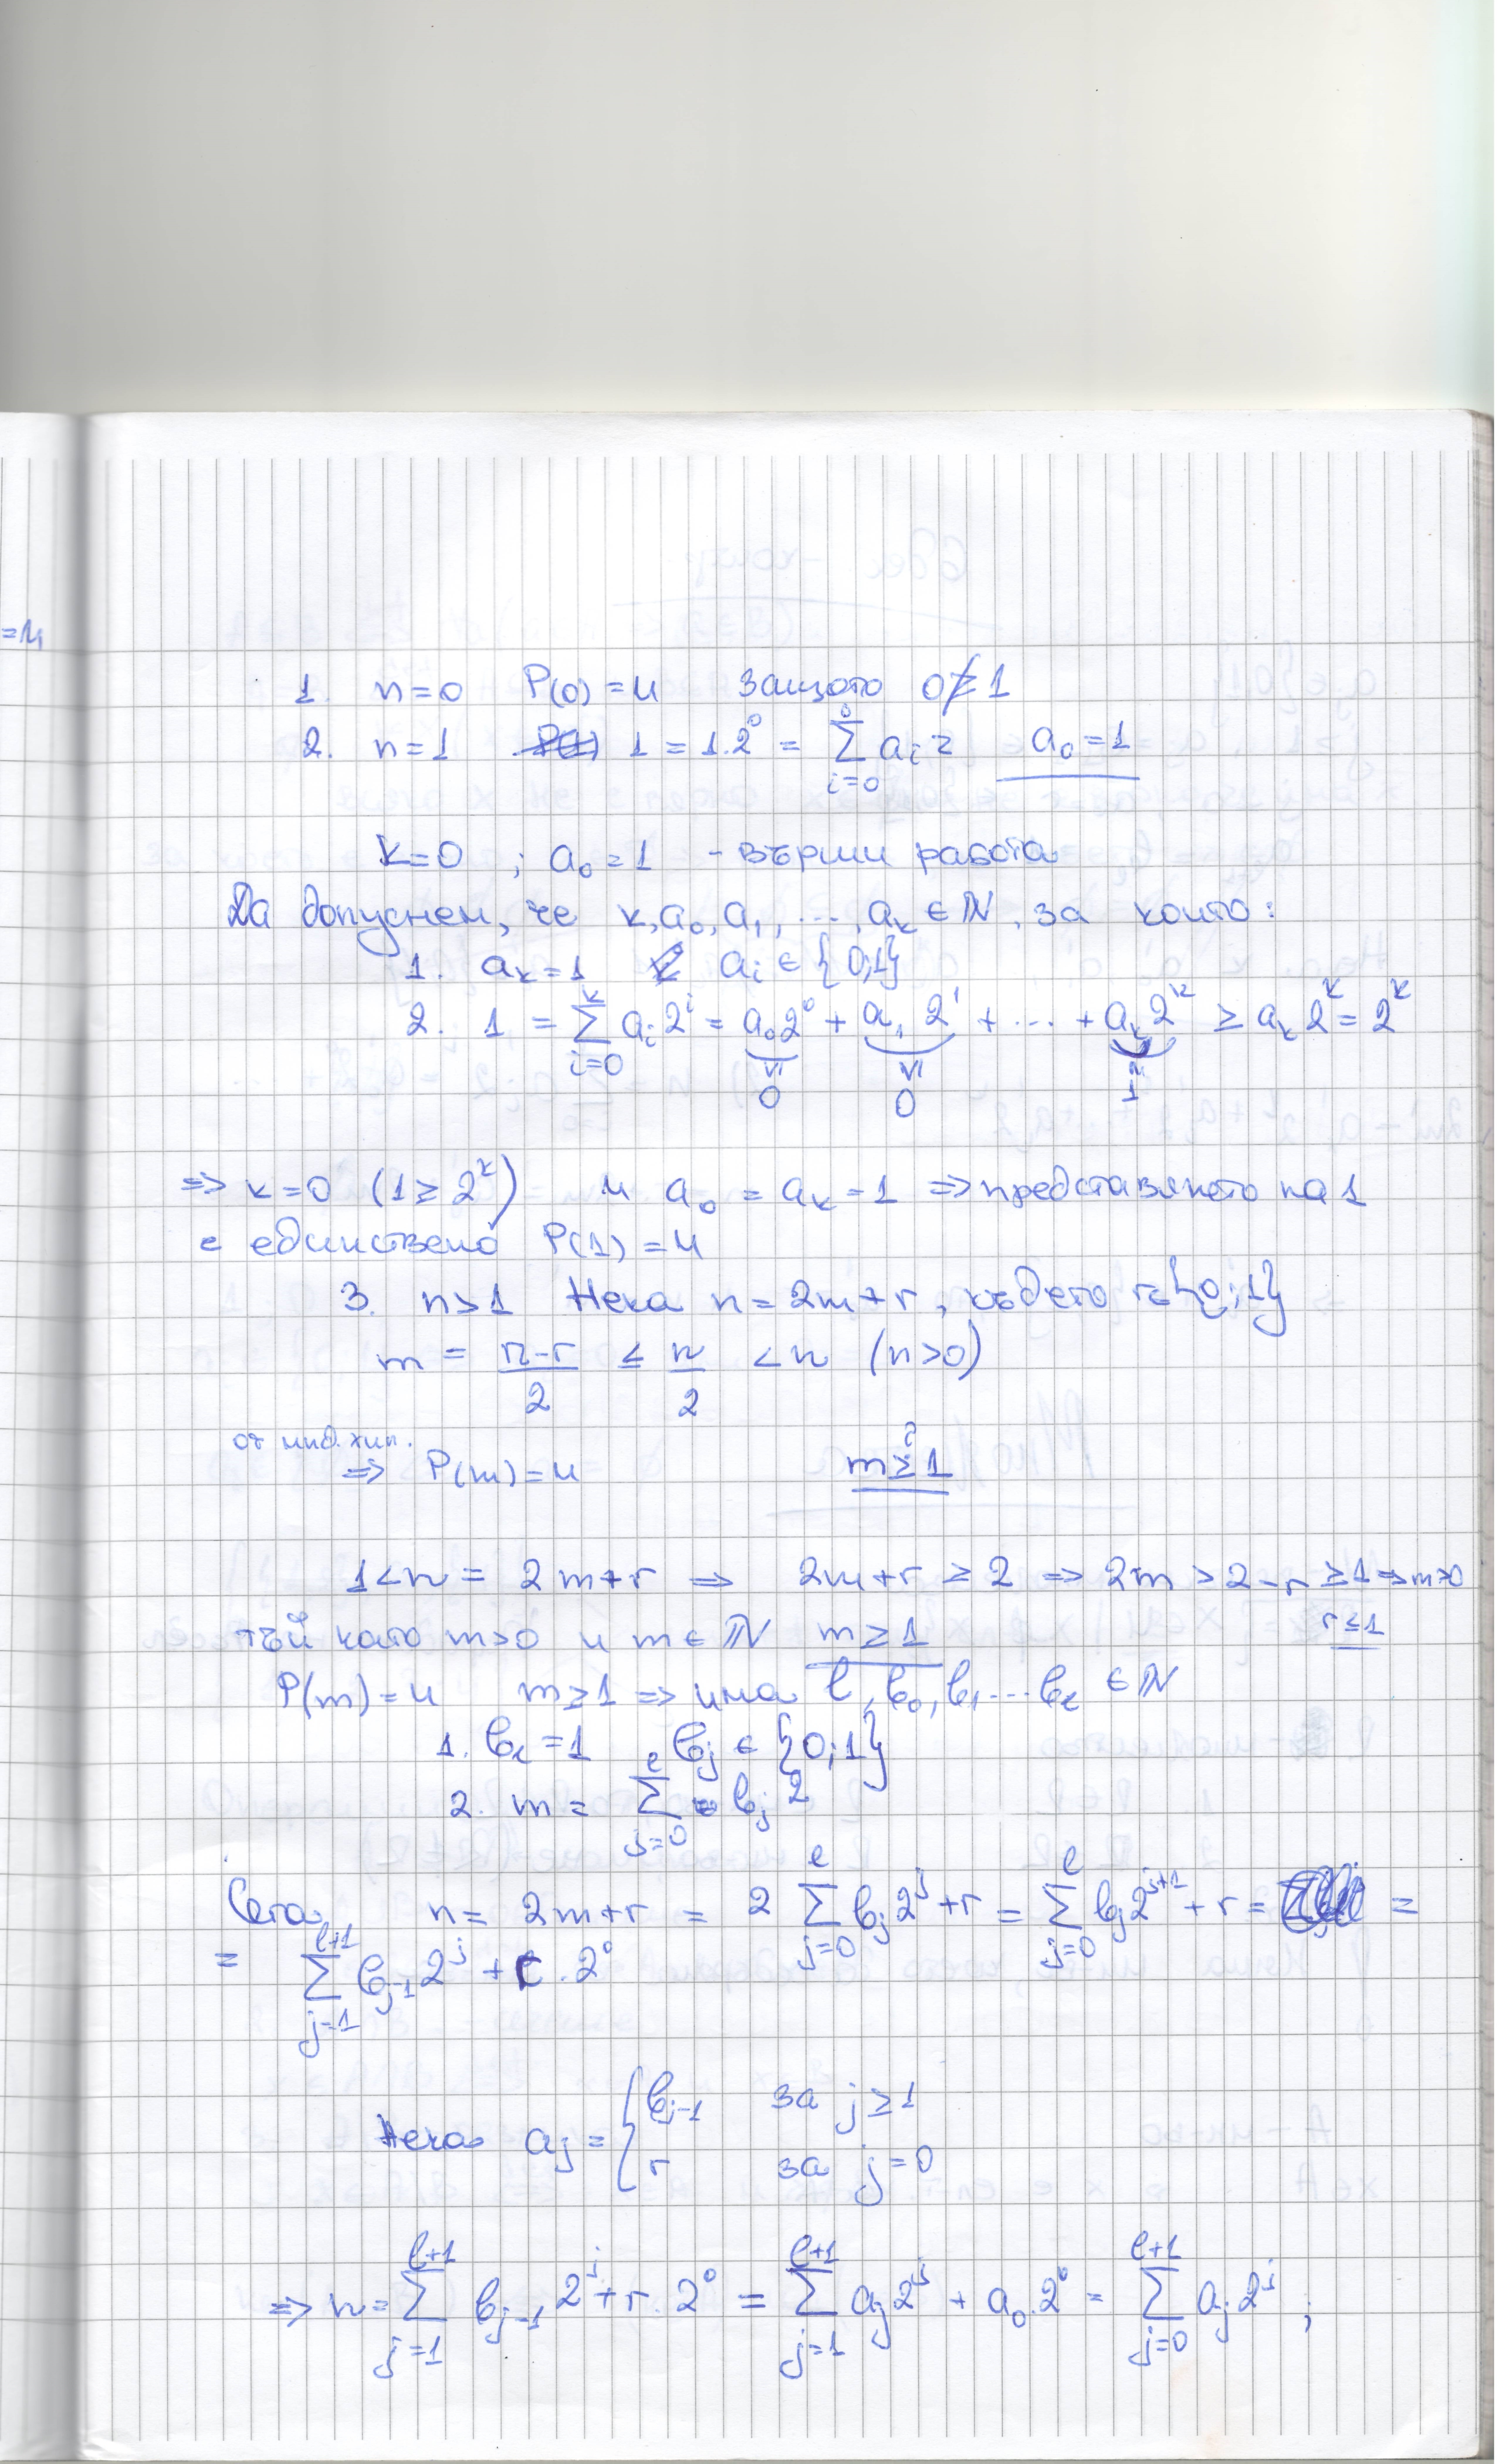 =и
1. n=0 P(0)=и защото 0≱1
2. n=1 1=1.2⁰ = ∑_{i=0}^{0} aᵢ 2 a₀=1
k=0 ; a₀=1 - върши работа
Да допуснем, че k,a₀,a₁, ..., aₖ ∈ ℕ, за които:
1. aₖ=1 aᵢ ∈ {0;1}
2. 1 = ∑_{i=0}^{k} aᵢ 2ⁱ = a₀2⁰ + a₁ 2¹ + ... + aₖ2ᵏ ≥ aₖ2ᵏ = 2ᵏ
≥ 0 ≥ 0 = 1
=> k=0 (1≥2ᵏ) и a₀ = aₖ = 1 => представянето на 1
е единствено P(1)=и
3. n>1 Нека n=2m+r, където r∈{0;1}
m = (n-r)/2 ≤ n/2 < n (n>0)
от инд. хип.
=> P(m)=и m ≥? 1
1<n = 2m+r => 2m+r ≥ 2 => 2m > 2-r ≥1 => m>0
r≤1
тъй като m>0 и m∈ℕ m≥1
P(m)=и m≥1 => има l, b₀, b₁...bₗ ∈ ℕ
1. bₗ=1 bⱼ ∈ {0;1}
2. m = ∑_{j=0}^{l} bⱼ 2
Сега n= 2m+r = 2 ∑_{j=0}^{l} bⱼ2ʲ+r = ∑_{j=0}^{l} bⱼ2ʲ⁺¹ + r = =
= ∑_{j=1}^{l+1} bⱼ₋₁2ʲ + r . 2⁰
Нека aⱼ = { bⱼ₋₁ за j≥1
r за j=0
=> n= ∑_{j=1}^{l+1} bⱼ₋₁ 2ʲ + r. 2⁰ = ∑_{j=1}^{l+1} aⱼ2ʲ + a₀.2⁰ = ∑_{j=0}^{l+1} aⱼ2ʲ ;